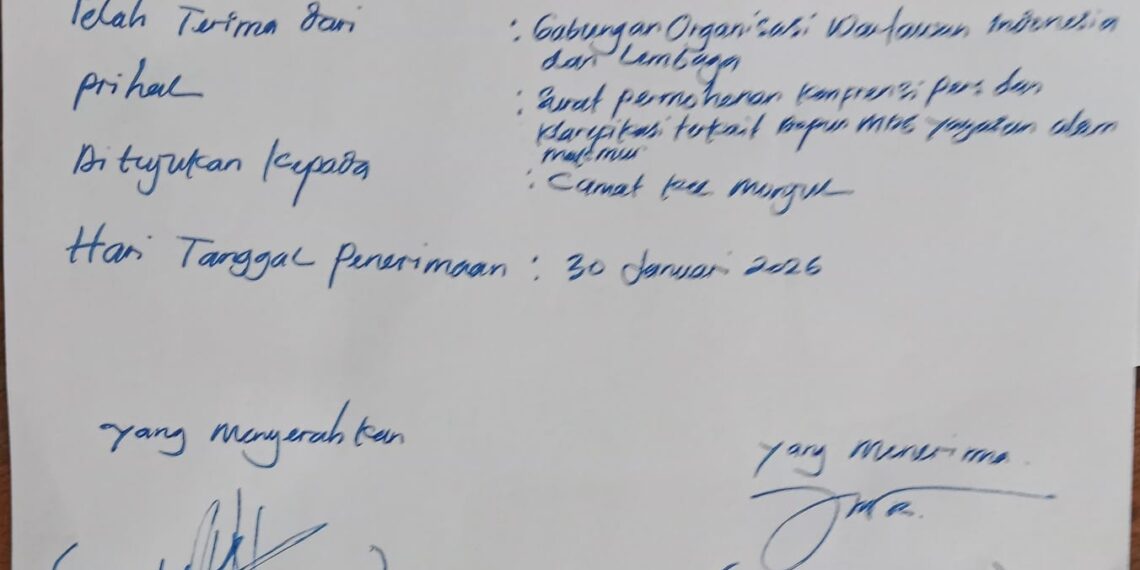 Telah Terima dari : Gabungan Organisasi Wartawan Indonesia
dan Lembaga
prihal : Surat permohonan konprensi pers dan
klarifikasi terkait Dapur MBG yayasan alam
makmur
Ditujukan kepada : Camat kec
Hari Tanggal penerimaan : 30 Januari 2026
yang menyerahkan
yang menerima